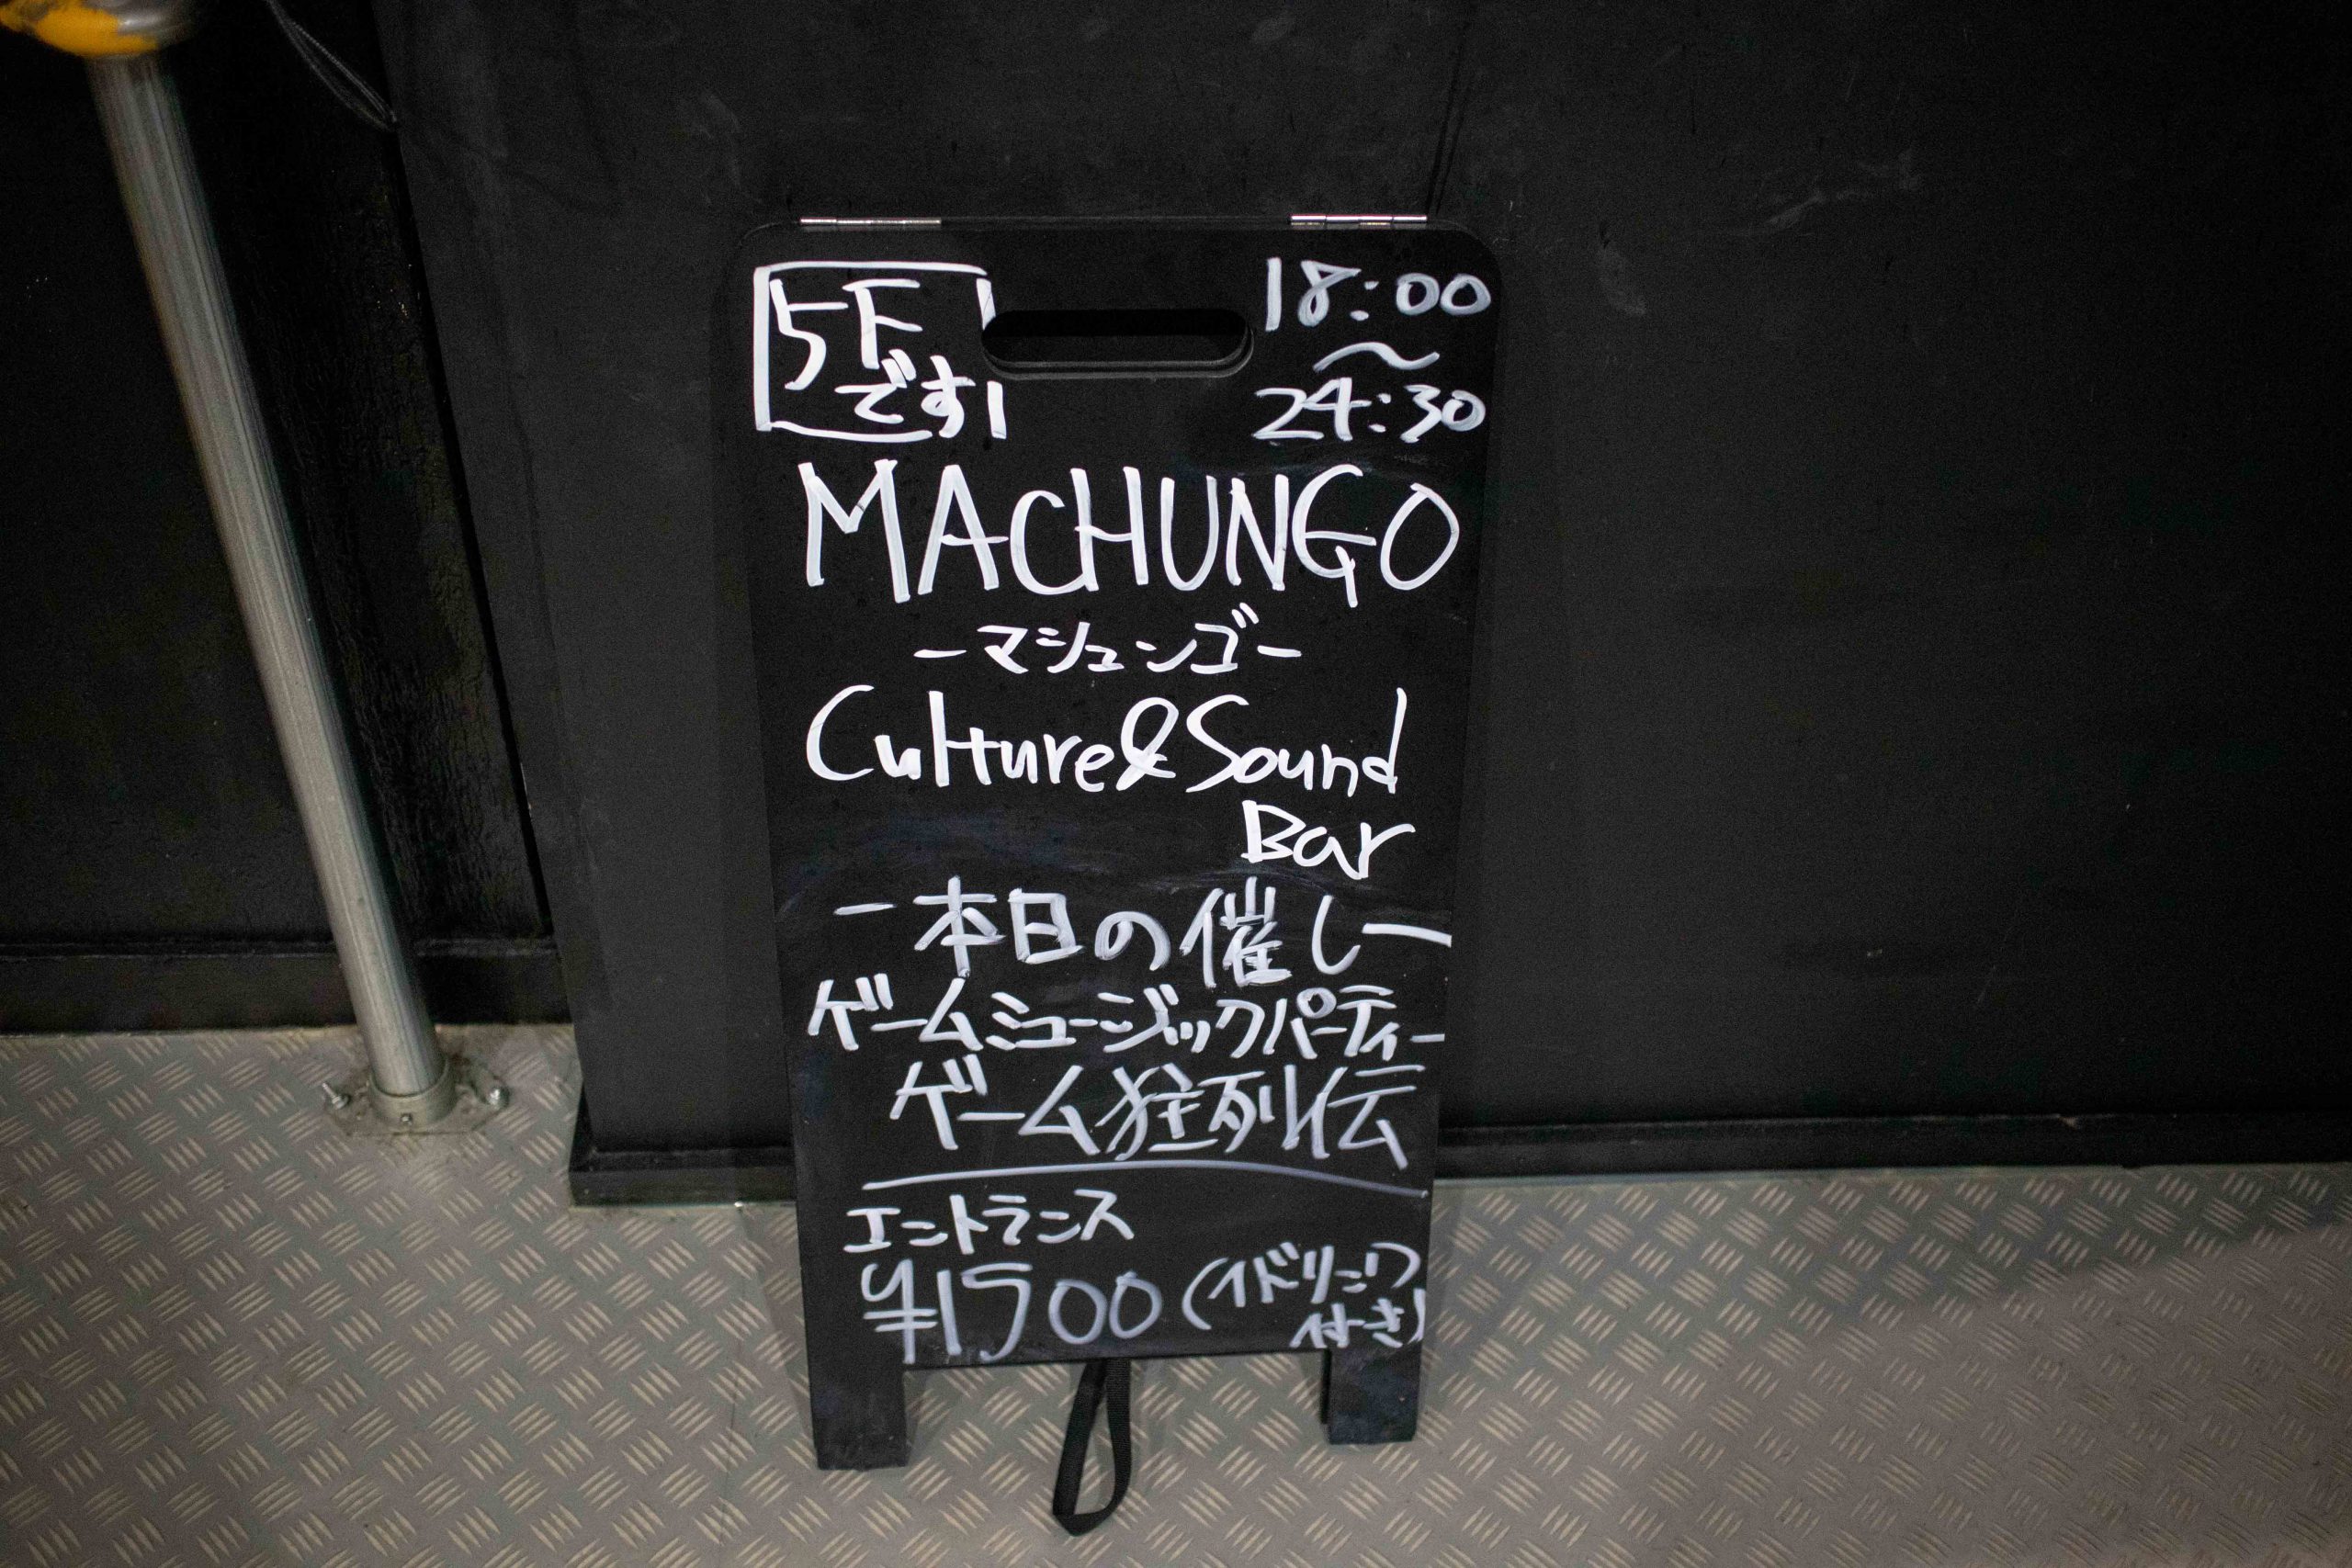 5F
です
18:00
～
24:30
MACHUNGO
－マシュンゴ－
Culture&Sound
Bar
－本日の催し－
ゲームミュージックパーティー
ゲーム狂列伝
エントランス
¥1500（1ドリンク
付き）